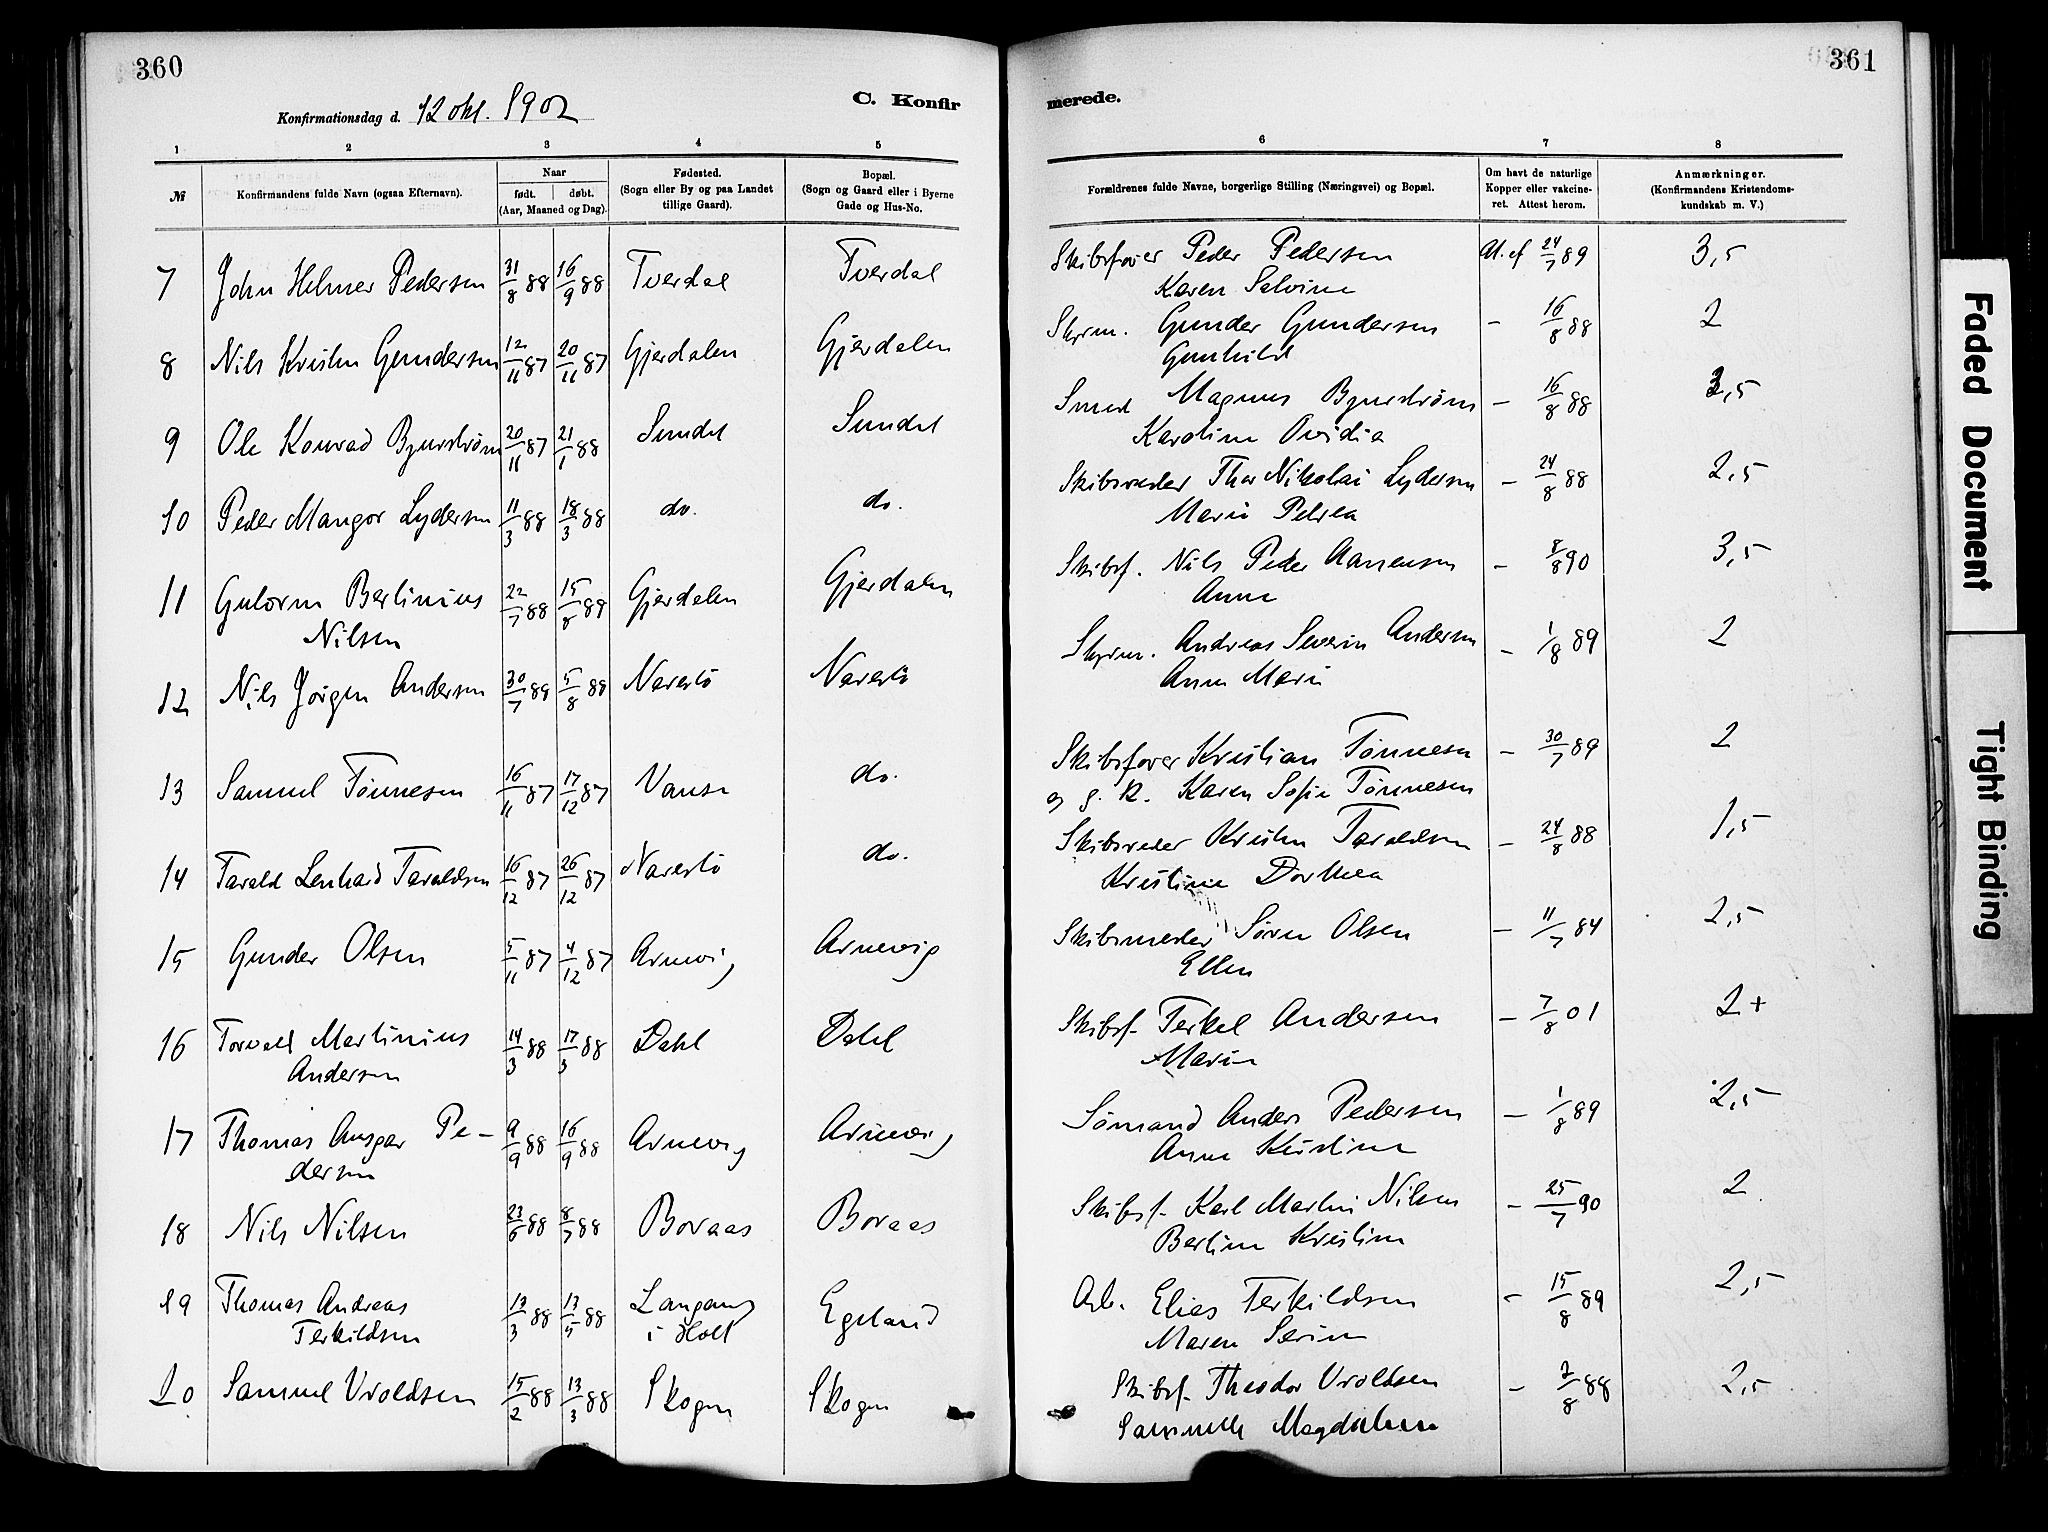 360
Konfirmationsdag d. 12 okt. 1902
C. Konfir
1 2 3 4 5
№
Konfirmandens fulde Navn (ogsaa Efternavn).
Naar
født. døbt.
(Aar, Maaned og Dag).
Fødested.
(Sogn eller By og paa Landet
tillige Gaard).
Bopæl.
(Sogn og Gaard eller i Byerne
Gade og Hus-No.
7 John Helmer Pedersen 31/8 88 16/9 88 Tverdal Tverdal
8 Nils Kristen Gundersen 12/11 87 20/11 87 Gjerdalen Gjerdalen
9 Ole Konrad Bjurström 20/11 87 21/1 88 Sundet Sundet
10 Peder Mangor Lydersen 11/3 88 18/3 88 do. do.
11 Gutorm Bertinius 22/7 88 15/8 88 Gjerdalen Gjerdalen
Nilsen
12 Nils Jørgen Andersen 30/7 88 5/8 88 Narestö Narestö
13 Samuel Tønnesen 16/11 87 17/12 87 Vanse do.
14 Tarald Lenhard Taraldsen 16/12 87 26/12 87 Narestö do.
15 Gunder Olsen 5/11 87 4/12 87 Arnevig Arnevig
16 Torvald Martinius 14/3 88 17/3 88 Dahl Dahl
Andersen
17 Thomas Ansgar Pe- 9/9 88 16/9 88 Arnevig Arnevig
dersen
18 Nils Nilsen 23/6 88 8/7 88 Boraas Boraas
19 Thomas Andreas 13/3 88 13/5 88 Langang Egeland
Terkildsen i Holt
20 Samuel Vroldsen 15/2 88 13/3 88 Skogen Skogen
361
merede.
6 7 8
Forældrenes fulde Navne, borgerlige Stilling (Næringsvei) og Bopæl.
Om havt de naturlige
Kopper eller vakcine-
ret. Attest herom.
Anmærkninger.
(Konfirmandens Kristendoms-
kundskab m. V.)
Skibsfører Peder Pedersen At. af 24/7 89 3,5
Karen Salvine
Styrm. Gunder Gundersen - 16/8 88 2
Gunhild
Smed Magnus Bjurström - 16/8 88 3,5
Karoline Ovidia
Skibsreder Thor Nikolai Lydersen - 24/8 88 2,5
Marie Petrea
Skibsf. Nils Peder Aanensen - 8/8 90 3,5
Anne
Styrm. Andreas Severin Andersen - 1/8 89 2
Anne Marie
Skibsfører Kristian Tønnesen - 30/7 89 2
og g. k. Karen Sofie Tønnesen
Skibsreder Kristen Taraldsen - 24/8 88 1,5
Kristine Dorthea
Skibsmæder Søren Olsen - 11/7 84 2,5
Ellen
Skibsf. Terkel Andersen - 7/8 01 2+
Marie
Sømand Anders Pedersen - 1/8 89 2,5
Anne Kirstine
Skibsf. Karl Martin Nilsen - 25/7 90 2
Bertine Kristine
Arb. Elias Terkildsen - 15/8 89 2,5
Maren Serine
Skibsf. Theodor Vroldsen - 2/8 88 2,5
Samuelle Magdalene
Faded Document
Tight Binding